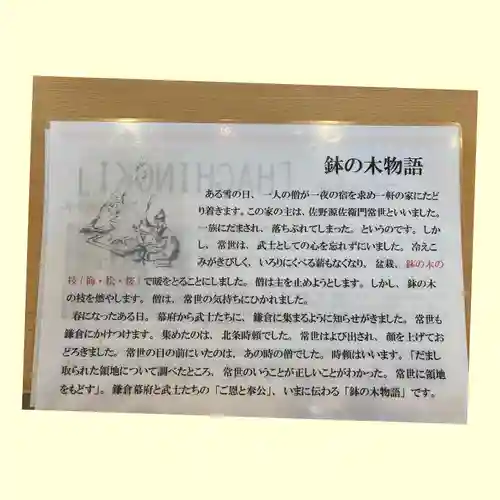 鉢の木物語
ある雪の日、一人の僧が一夜の宿を求め一軒の家にたど
り着きます。この家の主は、佐野源佐衛門常世といいました。
一族にだまされ、落ちぶれてしまった。というのです。しか
し、常世は、武士としての心を忘れずにいました。冷えこ
みがきびしく、いろりにくべる薪もなくなり、盆栽、鉢の木の
枝(梅・松・桜)で暖をとることにしました。僧は主を止めようとします。しかし、鉢の木
の枝を燃やします。僧は、常世の気持ちにひかれました。
春になったある日。幕府から武士たちに、鎌倉に集まるように知らせがきました。常世も
鎌倉にかけつけます。集めたのは、北条時頼でした。常世はよび出され、顔を上げてお
どろきました。常世の目の前にいたのは、あの時の僧でした。時頼はいいます。「だまし
取られた領地について調べたところ、常世のいうことが正しいことがわかった。常世に領地
をもどす」。鎌倉幕府と武士たちの「ご恩と奉公」、いまに伝わる「鉢の木物語」です。
HACHINOKI